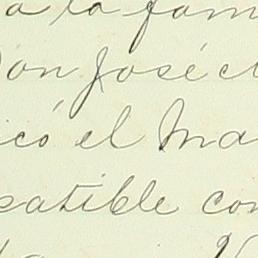 a la fam
Don José
icó el Ma
patible con